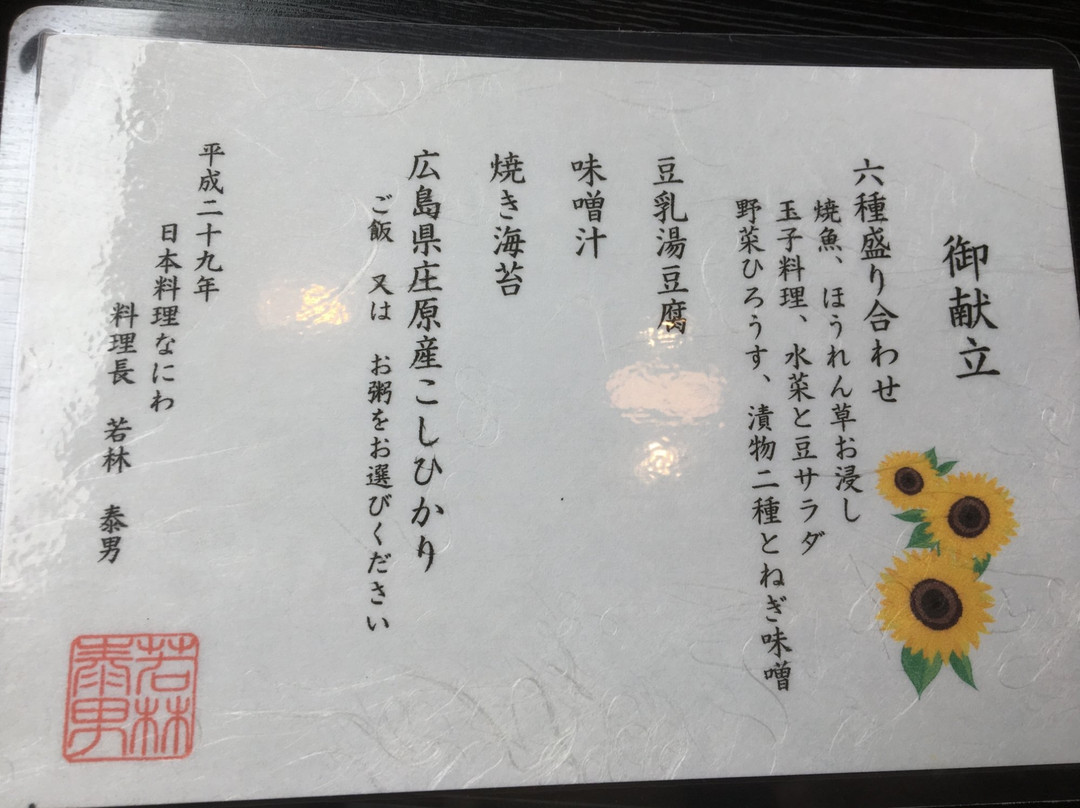 御献立
六種盛り合わせ
焼魚、ほうれん草お浸し
玉子料理、水菜と豆サラダ
野菜ひろうす、漬物二種とねぎ味噌
豆乳湯豆腐
味噌汁
焼き海苔
広島県庄原産こしひかり
ご飯 又は お粥をお選びください
平成二十九年
日本料理なにわ
料理長 若林 泰男
若林
泰男